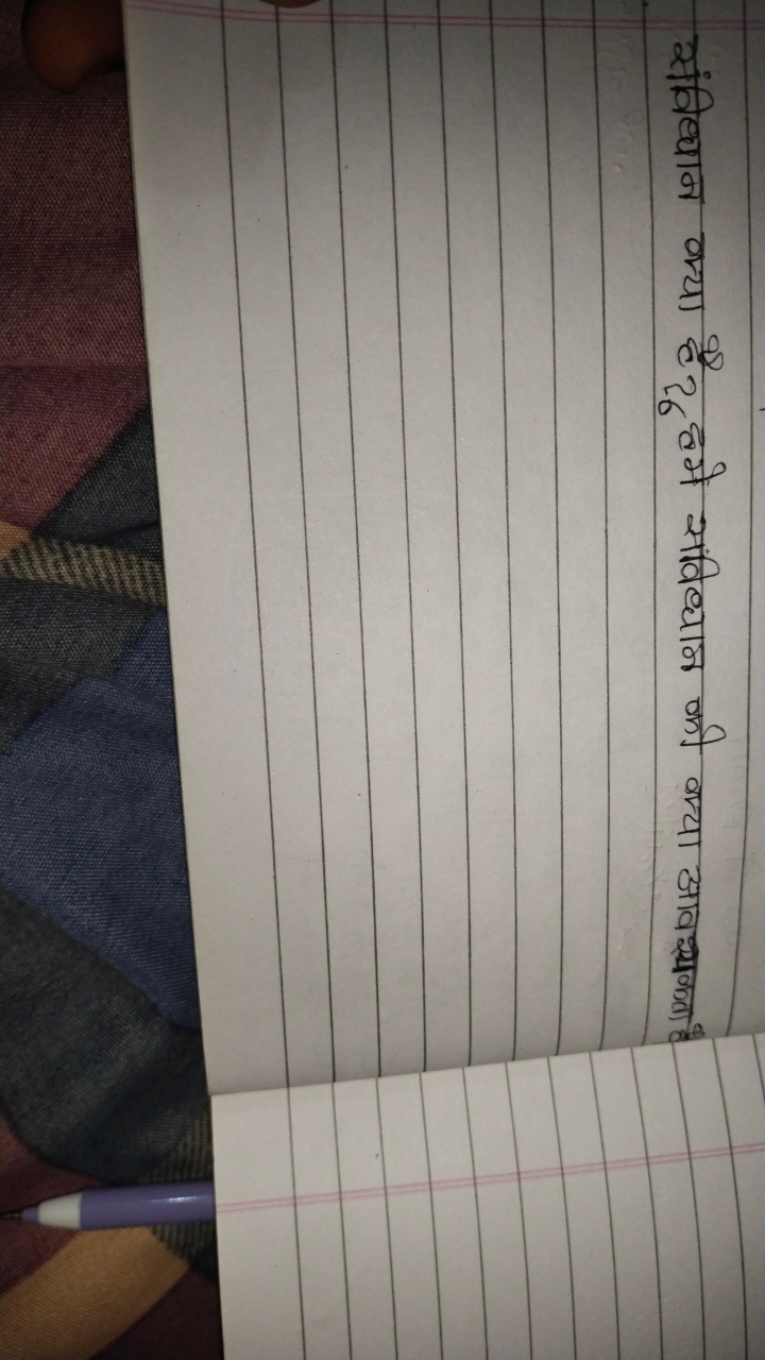 संविधान क्या है? हमें संविधान की क्या आवश्यकता है